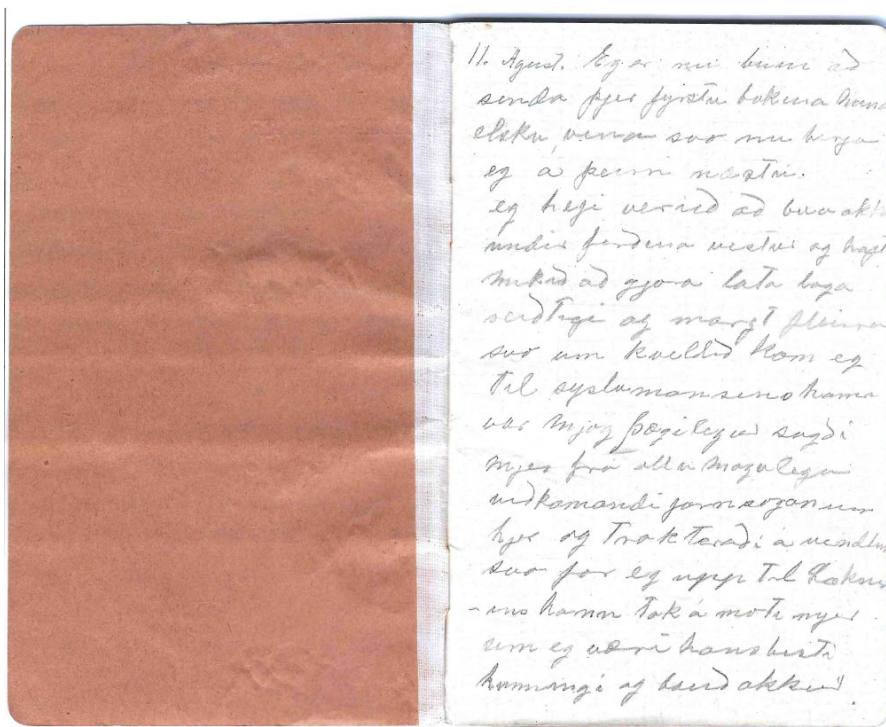 11. Agust. Eg er nu buin að
senda þjer fyrstu bokina
elsku vina svo nu birja
eg a þeirri næstu.
eg hefi verið að bua okk
undir ferðina vestur og haft
mikið að gjora lata laga
reiðtigi og margt fleirra
svo um kveldið kom eg
til syslumansins hann
var mjog þægilegur sagði
mjer frá ollu mogulegu
viðkomandi
hjer og Trakteraði a vindlum
svo for eg upp til Læknis
-ins hann tok á moti mjer
sem eg væri hans besti
kunningi og bauð okkur